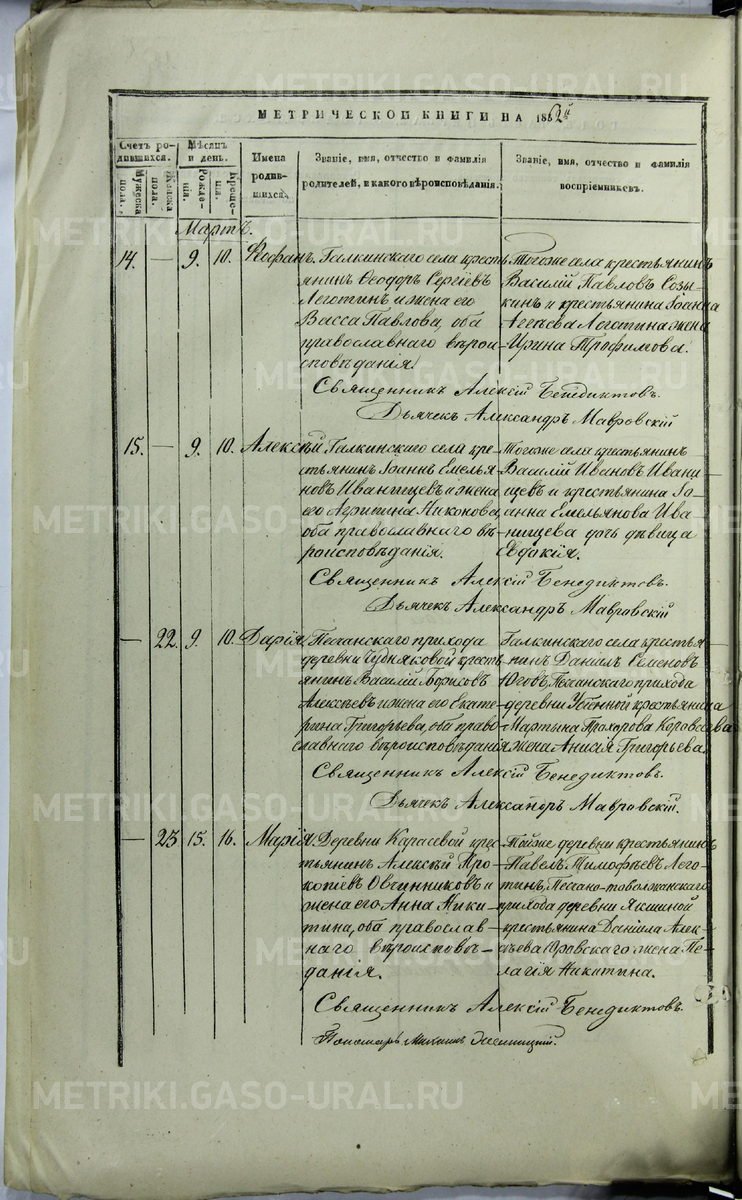 МЕТРИЧЕСКОЙ КНИГИ НА 1862й
Счетъ родившихся.
Мѣсяцъ и день.
Имена родившихся.
Званіе, имя, отчество и фамилія родителей, и какого вѣроисповѣданія.
Званіе, имя, отчество и фамилія воспріемниковъ.
Мужеска пола.
Женска пола.
Рожденія.
Крещенія.
Мартъ.
14. — 9. 10. Ѳеофанъ.
Галкинскаго села кресть
янинъ Ѳеодоръ Сергіевъ
Леготинъ и жена его
Васса Павлова, оба
православнаго вѣрои
сповѣданія.
Тогоже села крестьянинъ
Василій Павловъ Созы-
кинъ и крестьянина Іоанна
Агеѣева Леготина жена
Ирина Трофимова.
Священникъ Алексій Бенедиктовъ.
Дьячекъ Александръ Мавровскій
15. — 9. 10. Алексѣй
Галкинскаго села кре-
стьянинъ Іоаннъ Емелья
новъ Иванищевъ и жена
его Агрипина Никонова,
оба православнаго вѣ-
роисповѣданія.
Тогоже села крестьянинъ
Василій Ивановъ Ивани
щевъ и крестьянина Іо-
анна Емельянова Ива
нищева дочь дѣвица
Евдокія.
Священникъ Алексій Бенедиктовъ.
Дьячекъ Александръ Мавровскій
— 22. 9. 10. Дарія.
Песчанскаго прихода
деревни Чудняковой кресть
янинъ Василій Борисовъ
Алексѣевъ и жена его Екате
рина Григорьева, оба право-
славнаго вѣроисповѣданія
Галкинскаго села крестья
нинъ Даніилъ Семеновъ
Юговъ, Песчанскаго прихода
деревни крестьянина
Мартына Прохорова
жена Анисія Григорьева.
Священникъ Алексій Бенедиктовъ.
Дьячекъ Александръ Мавровскій.
— 23 15. 16. Марія.
Деревни Карасевой крес
тьянинъ Алексѣй Про
копіевъ Овчинниковъ и
жена его Анна Ники-
тина, оба православ-
наго вѣроисповѣ-
данія.
Тойже деревни крестьянинъ
Павелъ Тимофѣевъ Лего-
тинъ, Песчано-товолжанскаго
прихода деревни Якшиной
крестьянина Даніила Алек-
сѣева Юровскаго жена Пе-
лагія Никитина.
Священникъ Алексій Бенедиктовъ.
Пономарь
METRIKI.GASO-URAL.RU